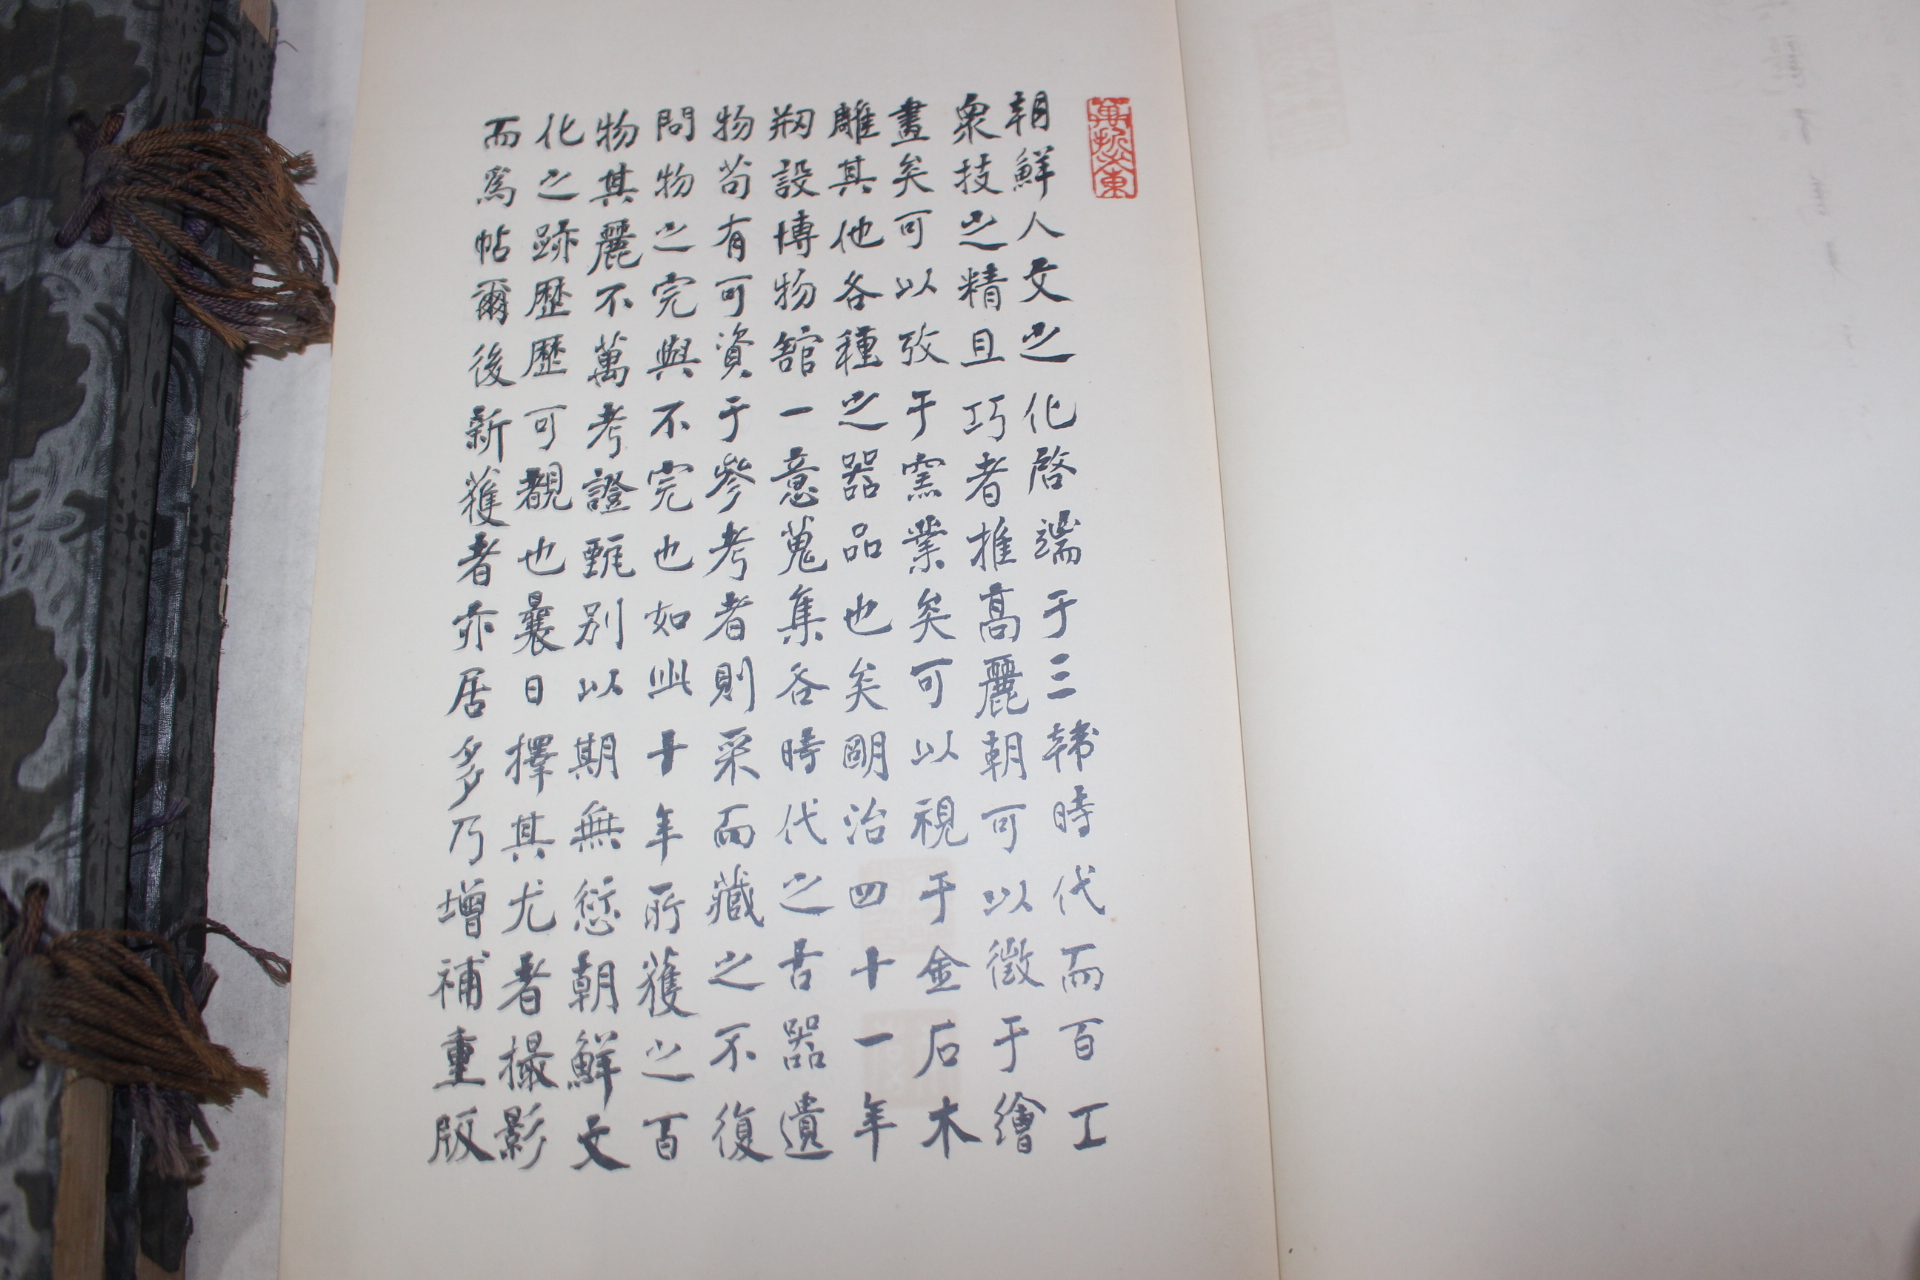 萬折必東
朝鮮人文之化啓端于三韓時代而百工
衆技之精且巧者推高麗朝可以徵于繪
畫矣可以攷于窯業矣可以視于金石木
離其他各種之器品也矣明治四十一年
剏設博物館一意蒐集各時代之古器遺
物苟有可資于參考者則采而藏之不復
問物之完與不完也如此十年所獲之百
物其麗不萬考證甄別以期無愆朝鮮文
化之跡歷歷可觀也曩日擇其尤者撮影
而爲帖爾後新獲者亦居多乃增補重版